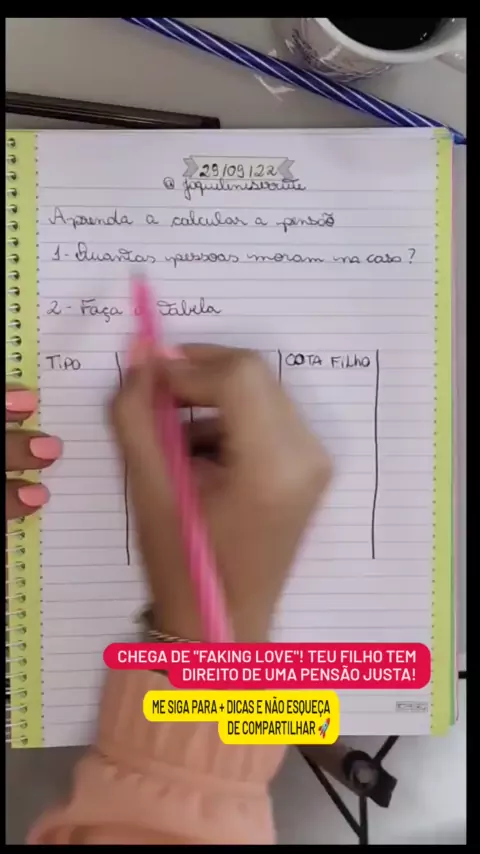 29/09/22
Aprenda a calcular a pensão
1- Quantas pessoas moram na casa?
2- Faça a Tabela
TIPO
COTA FILHO
CHEGA DE "FAKING LOVE"! TEU FILHO TEM
DIREITO DE UMA PENSÃO JUSTA!
ME SIGA PARA + DICAS E NÃO ESQUEÇA
DE COMPARTILHAR 🚀